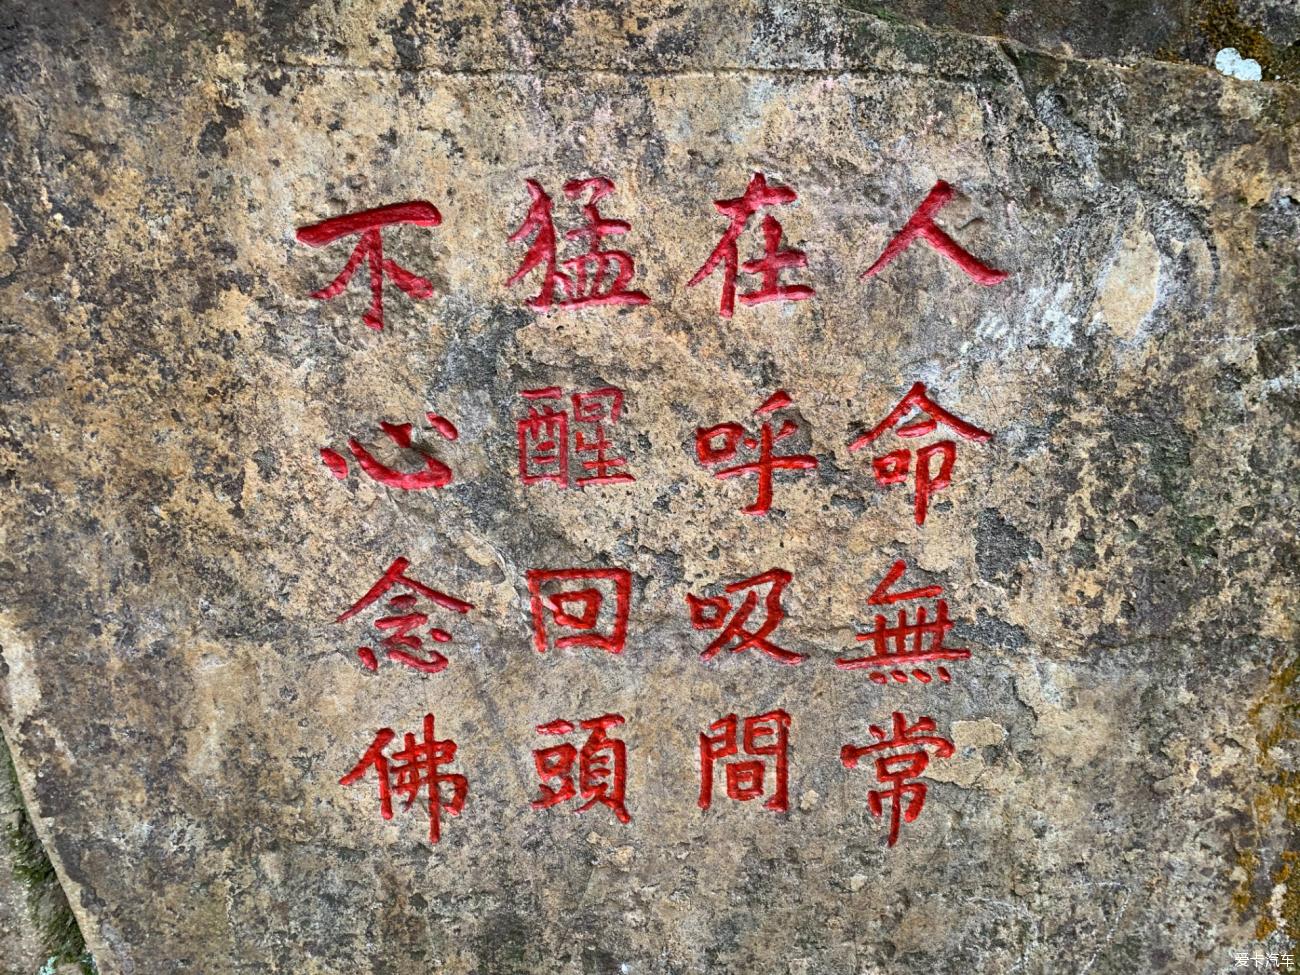 人命無常
在呼吸間
猛醒回頭
不心念佛
爱卡汽车